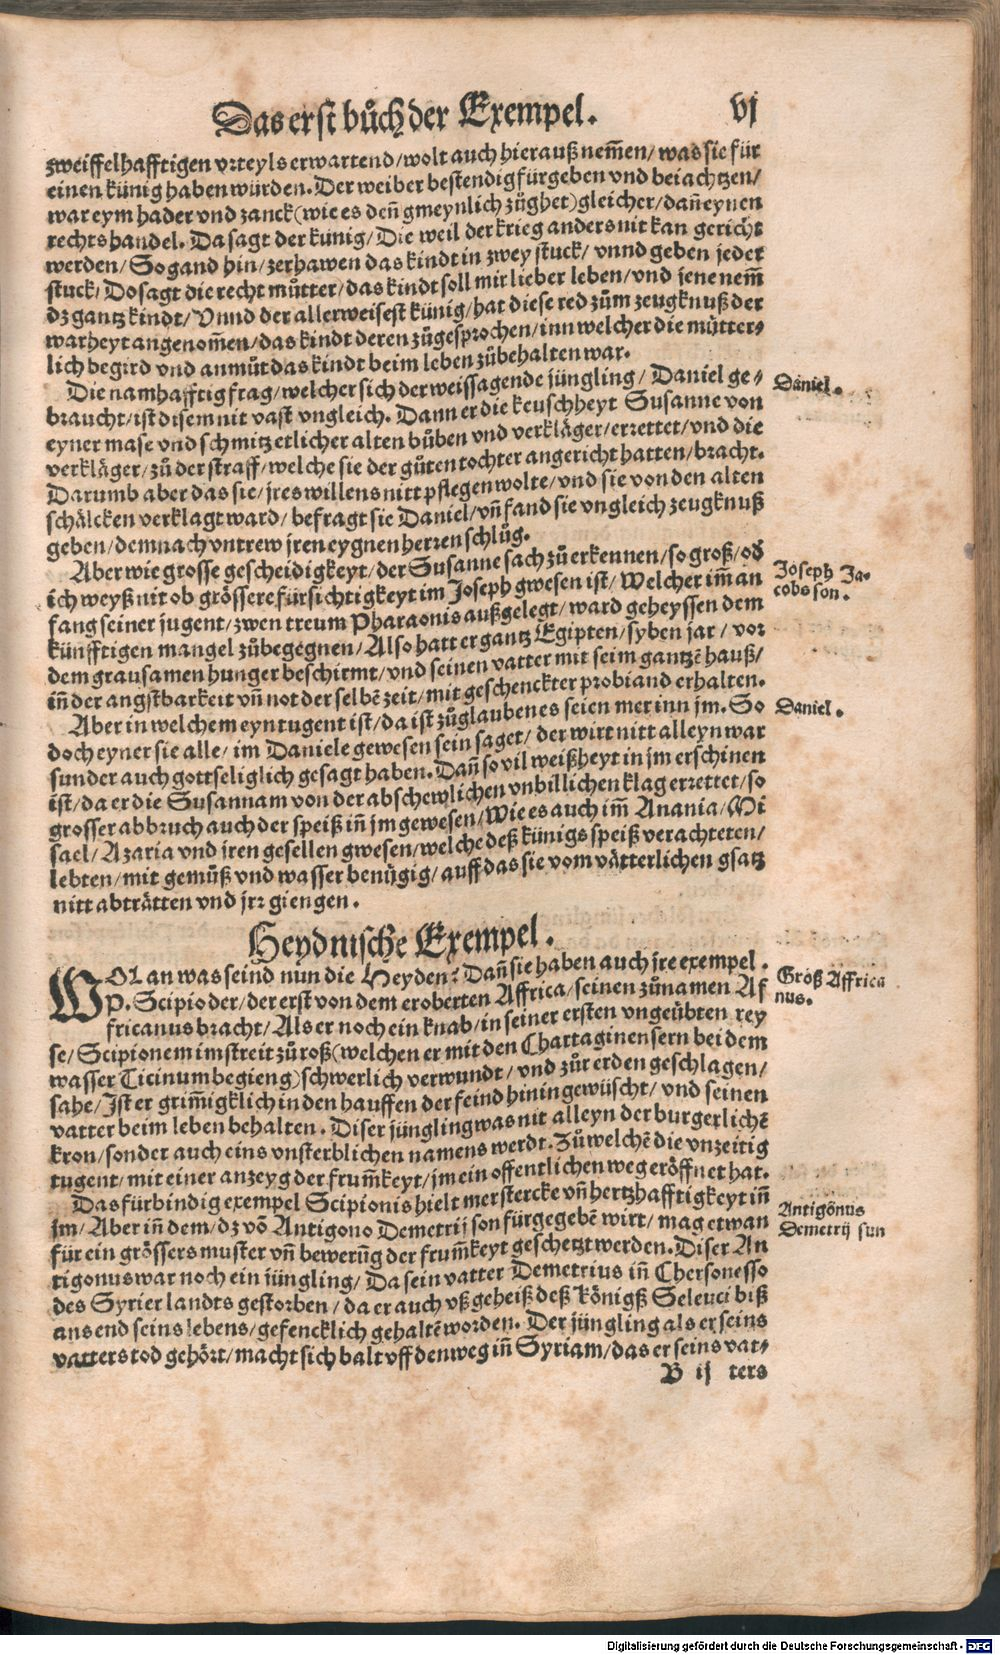 Das erst bůch der Exempel. vj
zweiffelhafftigen vrteyls erwartend/wolt auch hierauß nem̃en/was sie für
einen künig haben würden. Der weiber bestendig fürgeben vnd beiachtzen/
war eym hader vnd zanck(wie es deñ gmeynlich zůghet)gleicher/dañ eynen
rechtshandel. Da sagt der künig/Die weil der krieg anders nit kan gericht
werden/So gand hin/zerhawen das kindt in zwey stuck/vnnd geben jeder
stuck/Do sagt die recht můtter/das kindt soll mir lieber leben/vnd jene nem̃
dz gantz kindt/Vnnd der allerweisest künig/hat diese red zům zeugknuß der
warheyt angenom̃en/das kindt deren zůgesprochen/inn welcher die můtter⸗
lich begird vnd anmůt das kindt beim leben zůbehalten war.
Die namhafftig frag/welcher sich der weissagende jüngling/Daniel ge⸗
Daniel.
braucht/ist disem nit vast vngleich. Dann er die keuschheyt Susanne von
eyner mase vnd schmitz etlicher alten bůben vnd verkläger/errettet/vnd die
verkläger/zů der straff/welche sie der gůten tochter angericht hatten/bracht.
Darumb aber das sie/jres willens nitt pflegen wolte/vnd sie von den alten
schälcken verklagt ward/befragt sie Daniel/vñ fand sie vngleich zeugknuß
geben/demnach vntrew jren eygnen herren schlůg.
Aber wie grosse gescheidigkeyt/der Susanne sach zů erkennen/so groß/od
Joseph Ja⸗
cobs son.
ich weyß nit ob grössere fürsichtigkeyt im Joseph gwesen ist/Welcher im̃ an
fang seiner jugent/zwen treum Pharaonis außgelegt/ward geheyssen dem
künfftigen mangel zůbegegnen/Also hatt er gantz Egipten/syben jar/vor
dem grausamen hunger beschirmt/vnd seinen vatter mit seim gantzē hauß/
iñ der angstbarkeit vñ not der selbē zeit/mit geschenckter probiand erhalten.
Aber in welchem eyn tugent ist/da ist zůglauben es seien mer inn jm. So
Daniel.
doch eyner sie alle/im Daniele gewesen sein saget/der wirt nitt alleyn war
sunder auch gottseliglich gesagt haben. Dañ so vil weißheyt in jm erschinen
ist/da er die Susannam von der abschewlichen vnbillichen klag errettet/so
grosser abbruch auch der speiß iñ jm gewesen/Wie es auch im̃ Anania/Mi
sael/Azaria vnd jren gesellen gwesen/welche deß künigs speiß verachteten/
lebten/mit gemůß vnd wasser benügig/auff das sie vom vätterlichen gsatz
nitt abträtten vnd jrr giengen.
Heydnische Exempel.
WOl an was seind nun die Heyden? Dañ sie haben auch jre exempel.
Groß Affrica
nus.
P. Scipio der/der erst von dem eroberten Affrica/seinen zůnamen Af
fricanus bracht/Als er noch ein knab/in seiner ersten vngeübten rey
se/Scipionem im streit zů roß(welchen er mit den Chartaginensern bei dem
wasser Ticinum begieng)schwerlich verwundt/vnd zůr erden geschlagen/
sahe/Ist er grim̃igklich in den hauffen der feind hinin gewüscht/vnd seinen
vatter beim leben behalten. Diser jüngling was nit alleyn der burgerlichē
kron/sonder auch eins vnsterblichen namens werdt. Zů welchē die vnzeitig
tugent/mit einer anzeyg der frum̃keyt/jm ein offentlichen weg eröffnet hat.
Das fürbindig exempel Scipionis hielt mer stercke vñ hertzhafftigkeyt iñ
Antigōnus
Demetrij sun
jm/Aber iñ dem/dz vō Antigono Demetrij son fürgegebē wirt/mag etwan
für ein grössers muster vñ bewerũg der frum̃keyt geschetzt werden. Diser An
tigonus war noch ein jüngling/Da sein vatter Demetrius iñ Chersonesso
des Syrier landts gestorben/da er auch vß geheiß deß Königß Seleuci biß
ans end seins lebens/gefencklich gehaltē worden. Der jüngling als er seins
vatters tod gehört/macht sich balt vff den weg iñ Syriam/das er seins vat⸗
B ij ters
Digitalisierung gefördert durch die Deutsche Forschungsgemeinschaft - DFG